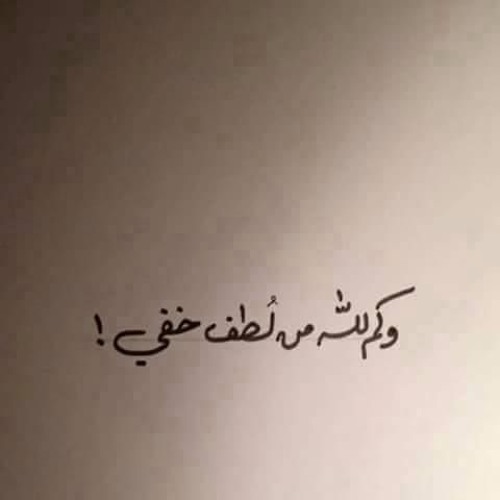 وكم لله من لُطف خفي !